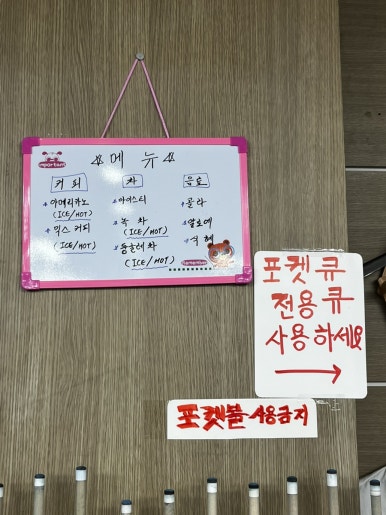 메 뉴
important
커피
차
음료
아메리카노
(ICE/HOT)
믹스 커피
(ICE/HOT)
아이스티
녹 차
(ICE/HOT)
둥굴레차
(ICE/HOT)
콜라
알로에
식 혜
remember
포켓 큐
전용 큐
사용하세요
포켓볼 사용금지